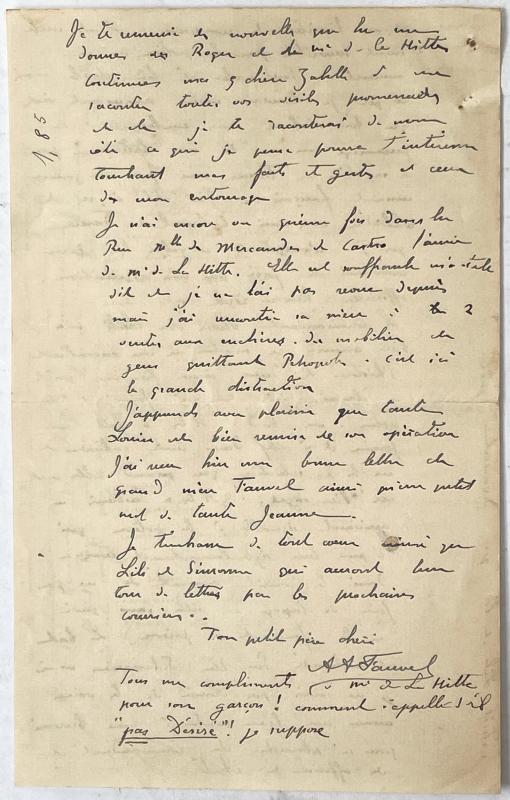 Je te remercie des nouvelles que tu me
donnes des Roger et de Me de la Hitte
Continues ma chère Zabeth à me
raconter toutes vos visites promenades
et je te raconterai de mon
côté ce que je pense pourra t'intéresser
touchant mes faits et gestes et ceux
de mon entourage
Je n'ai encore vu qu'une fois dans la
Rue Mlle de Mercandes de Castro l'amie
de Me de La Hitte. Elle est souffrante m'a-t-elle
dit et je ne l'ai pas revue depuis
mais j'ai rencontré sa mère à 2
ventes aux enchères du mobilier de
gens quittant Pétropolis. C'est ici
la grande distraction
J'apprends avec plaisir que tante
Louise est bien remise de son opération
J'ai reçu hier une bonne lettre de
grand mère Fauvel ainsi qu'un petit
mot de tante Jeanne.
Je t'embrasse de tout coeur ainsi que
Lili et Simonne qui auront leur
tour de lettres par les prochains
courriers..
Ton petit père chéri
A A Fauvel
Tous mes compliments à Me de La Hitte
pour son garçon! comment s'appelle-t-il
"pas Désiré"! je suppose
185